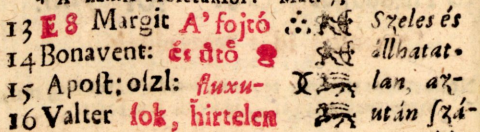 13 E 8 Margit A' fojtó Szeles és
14 Bonavent: és ütö állhatat-
15 Apoſt; oſzl: fluxu- lan, az-
16 Valter ſok, hirtelen után ſzá-